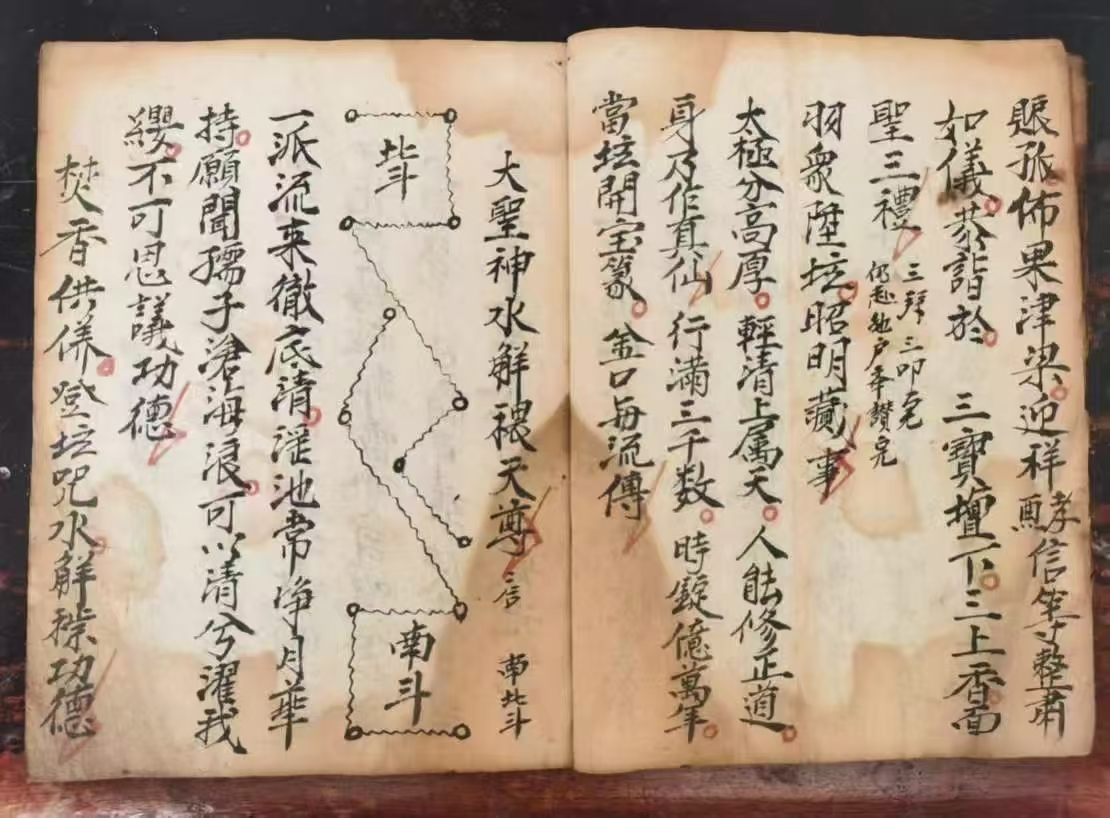 賑孤佈果津梁迎祥孝
醮信等整肅
如儀恭詣於 三寶壇下三上香面
聖三禮 三拜三叩完
仍赴地户奉讃完
羽衆陞坛昭明蕆事
太極分高厚輕清上属天人能修正道
身乃作真仙 行滿三千數 時錠億萬年
當坛開宝篆金口每流傳
大聖神水解穢天尊 三信 南北斗
北斗
南斗
一派流来徹底清滛池常净月華
持願聞孺子滄海浪可以清兮濯我
纓不可思議功德
焚香供養登坛咒水解襟功德